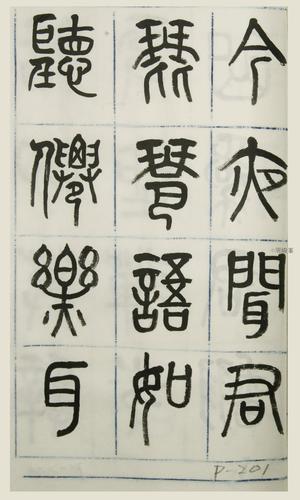 今夜聞君
琵琶語如
聽僊樂耳
P-201